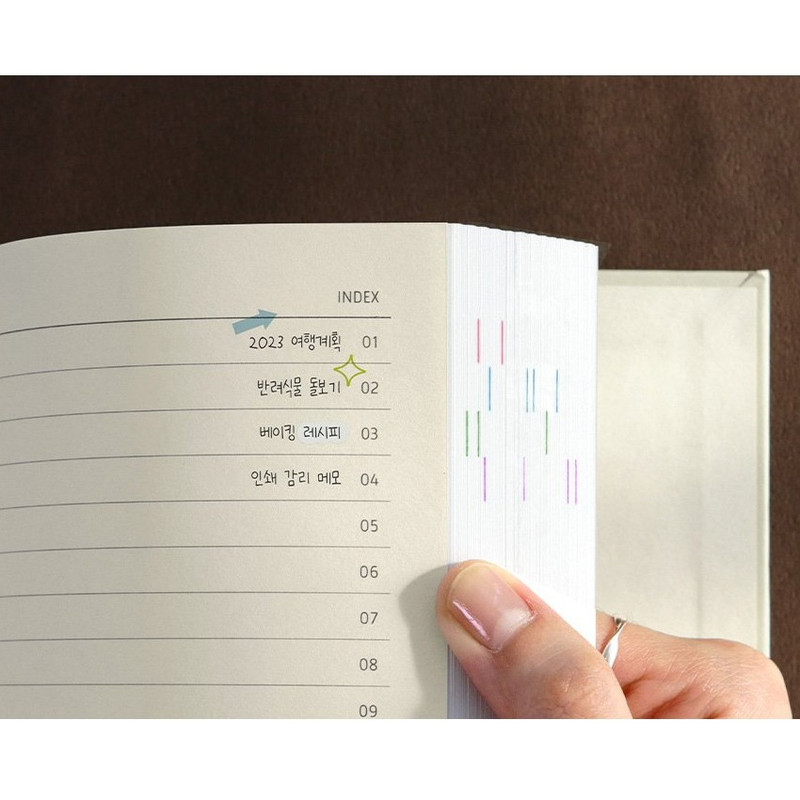 INDEX
2023 여행계획 01
반려식물 돌보기 02
베이킹 레시피 03
인쇄 감리 메모 04
05
06
07
08
09